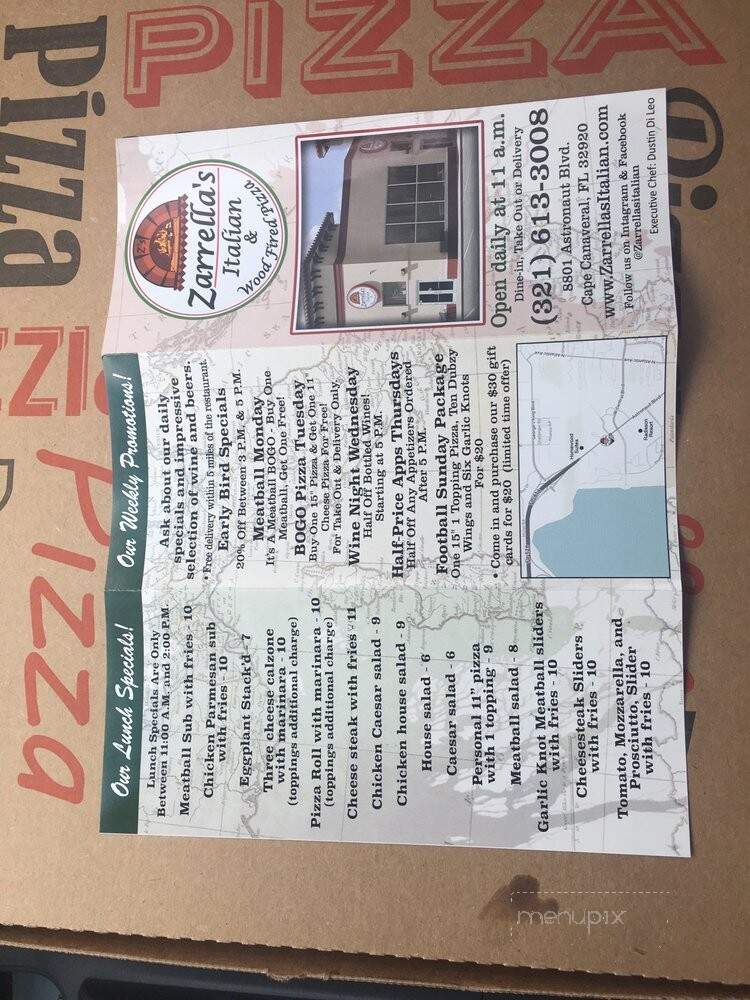 PIZZA
Pizza
Pizza
Our Lunch Specials!
Lunch Specials Are Only
Between 11:00 A.M. and 2:00 P.M.
Meatball Sub with fries - 10
Chicken Parmesan sub
with fries - 10
Eggplant Stack'd - 7
Three cheese calzone
with marinara - 10
(toppings additional charge)
Pizza Roll with marinara - 10
(toppings additional charge)
Cheese steak with fries - 11
Chicken Caesar salad - 9
Chicken house salad - 9
House salad - 6
Caesar salad - 6
Personal 11" pizza
with 1 topping - 9
Meatball salad - 8
Garlic Knot Meatball sliders
with fries - 10
Cheesesteak Sliders
with fries - 10
Tomato, Mozzarella, and
Prosciutto, Slider
with fries - 10
Our Weekly Promotions!
Ask about our daily
specials and impressive
selection of wine and beers.
• Free delivery within 5 miles of the restaurant
Early Bird Specials
20% Off Between 3 P.M. & 5 P.M.
Meatball Monday
It's A Meatball BOGO - Buy One
Meatball, Get One Free!
BOGO Pizza Tuesday
Buy One 15" Pizza & Get One 11"
Cheese Pizza For Free!
For Take Out & Delivery Only
Wine Night Wednesday
Half Off Bottled Wines!
Starting at 5 P.M.
Half-Price Apps Thursdays
Half Off Any Appetizers Ordered
After 5 P.M.
Football Sunday Package
One 15" 1 Topping Pizza, Ten Dubzy
Wings and Six Garlic Knots
For $20
• Come in and purchase our $30 gift
cards for $20 (limited time offer)
Homewood
Suites
Radisson
Resort
Zarrella's
Italian
&
Wood Fired Pizza
Open daily at 11 a.m.
Dine-in, Take Out or Delivery
(321) 613-3008
8801 Astronaut Blvd.
Cape Canaveral, FL 32920
www.ZarrellasItalian.com
Follow us on Intagram & Facebook
@Zarrellasitalian
Executive Chef: Dustin Di Leo
menupix